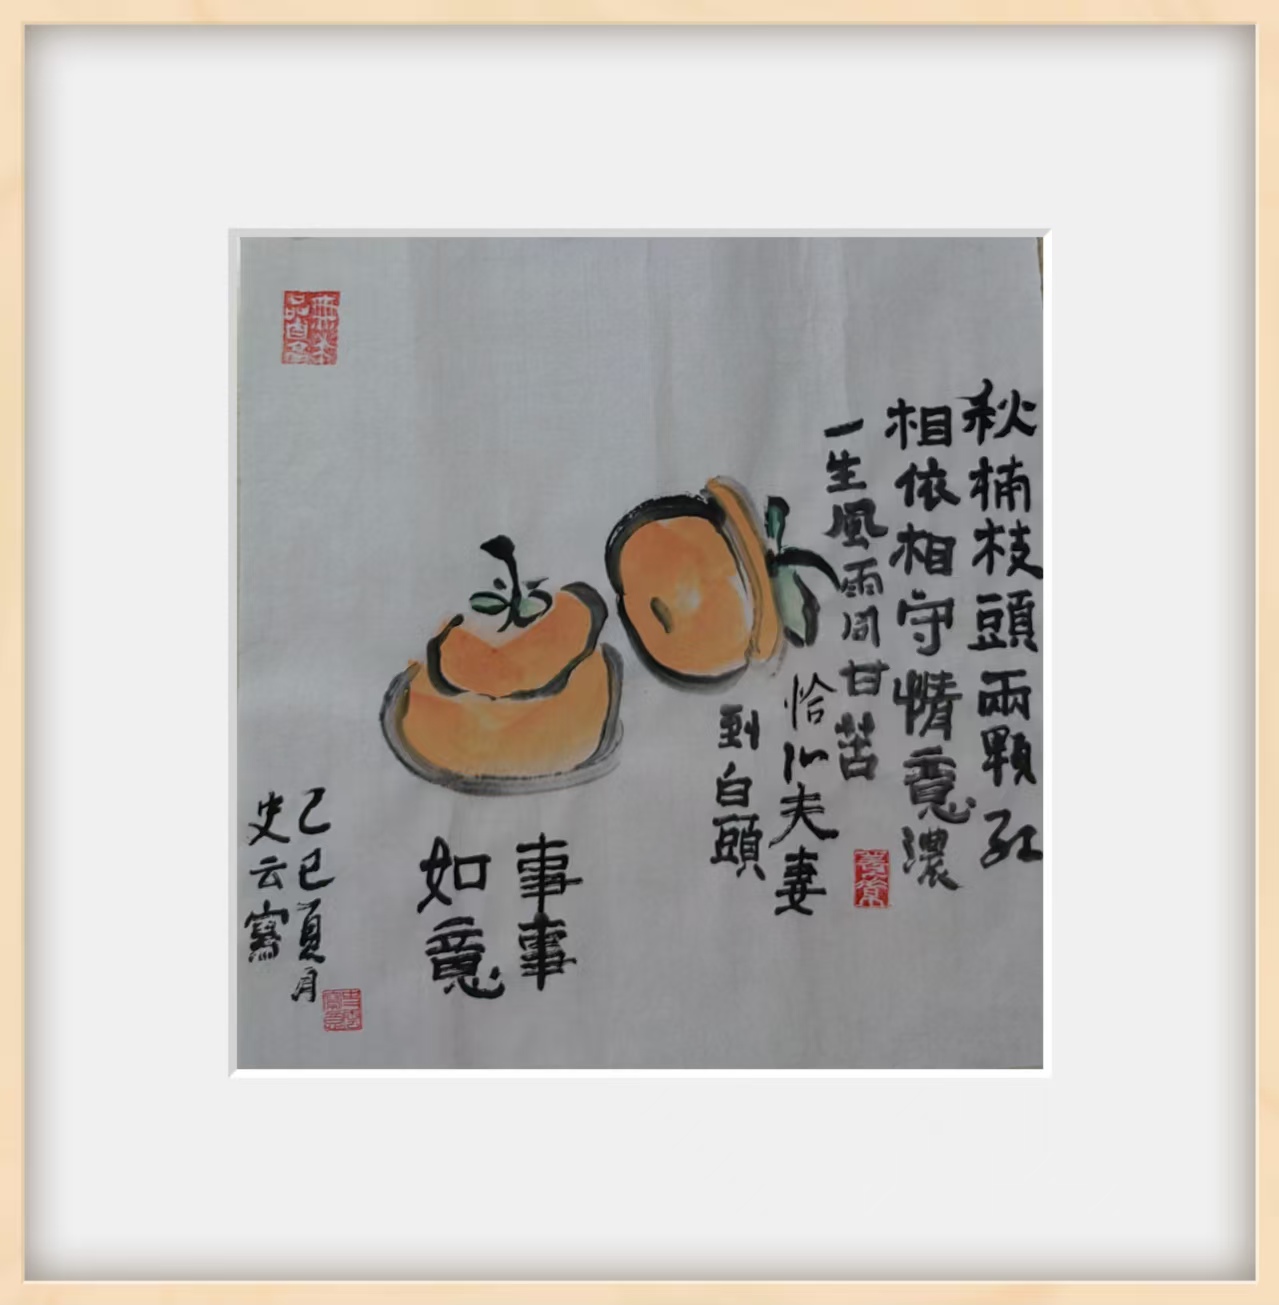 秋楠枝頭兩顆紅
相依相守情意濃
一生風雨同甘苦
恰似夫妻
到白頭
事事
如意
乙巳夏月
史云寫